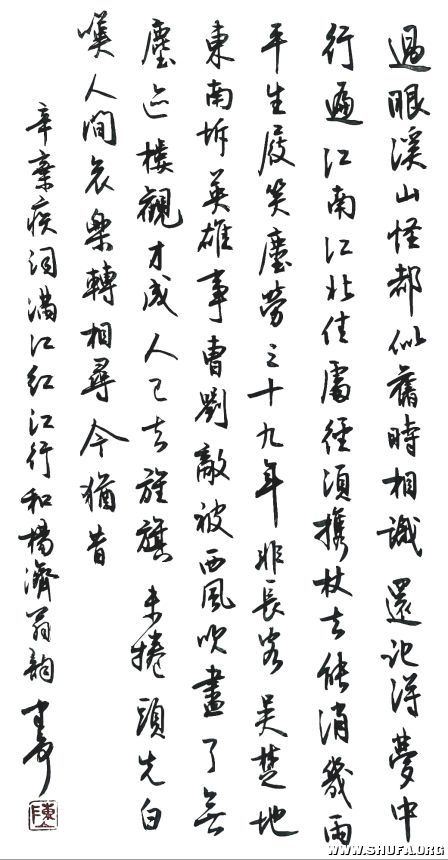 過眼溪山怪都似舊時相識還記得夢中
行遍江南江北佳處徑須攜杖去能消幾兩
平生屐笑塵勞三十九年非長客吳楚地
東南坼英雄事曹劉敵被西風吹盡了無
塵迹樓觀才成人已去旌旗未捲頭先白
嘆人間哀樂轉相尋今猶昔
辛棄疾詞滿江紅江行和楊濟翁韻
WWW.SHUFA.ORG